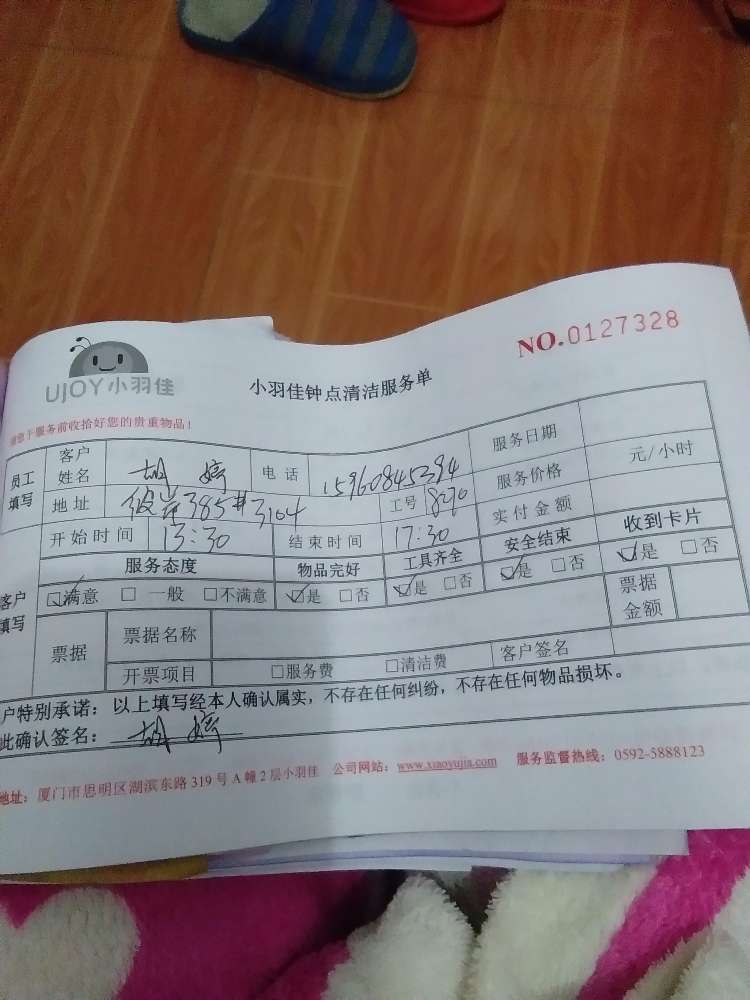 NO.0127328
UJOY小羽佳
小羽佳钟点清洁服务单
下服务前收拾好您的贵重物品！
员工填写 客户姓名 胡婷 电话 15960845394 服务日期
地址 彼岸385#3104 工号 8290 服务价格 元/小时
开始时间 13:30 结束时间 17:30 实付金额
服务态度 物品完好 工具齐全 安全结束 收到卡片
客户填写 ☑满意 □一般 □不满意 ☑是 □否 ☑是 □否 ☑是 □否 ☑是 □否
票据 票据名称 票据金额
开票项目 □服务费 □清洁费 客户签名
户特别承诺：以上填写经本人确认属实，不存在任何纠纷，不存在任何物品损坏。
此确认签名：胡婷
地址：厦门市思明区湖滨东路319号A幢2层小羽佳 公司网站：www.xiaoyujia.com 服务监督热线：0592-5888123